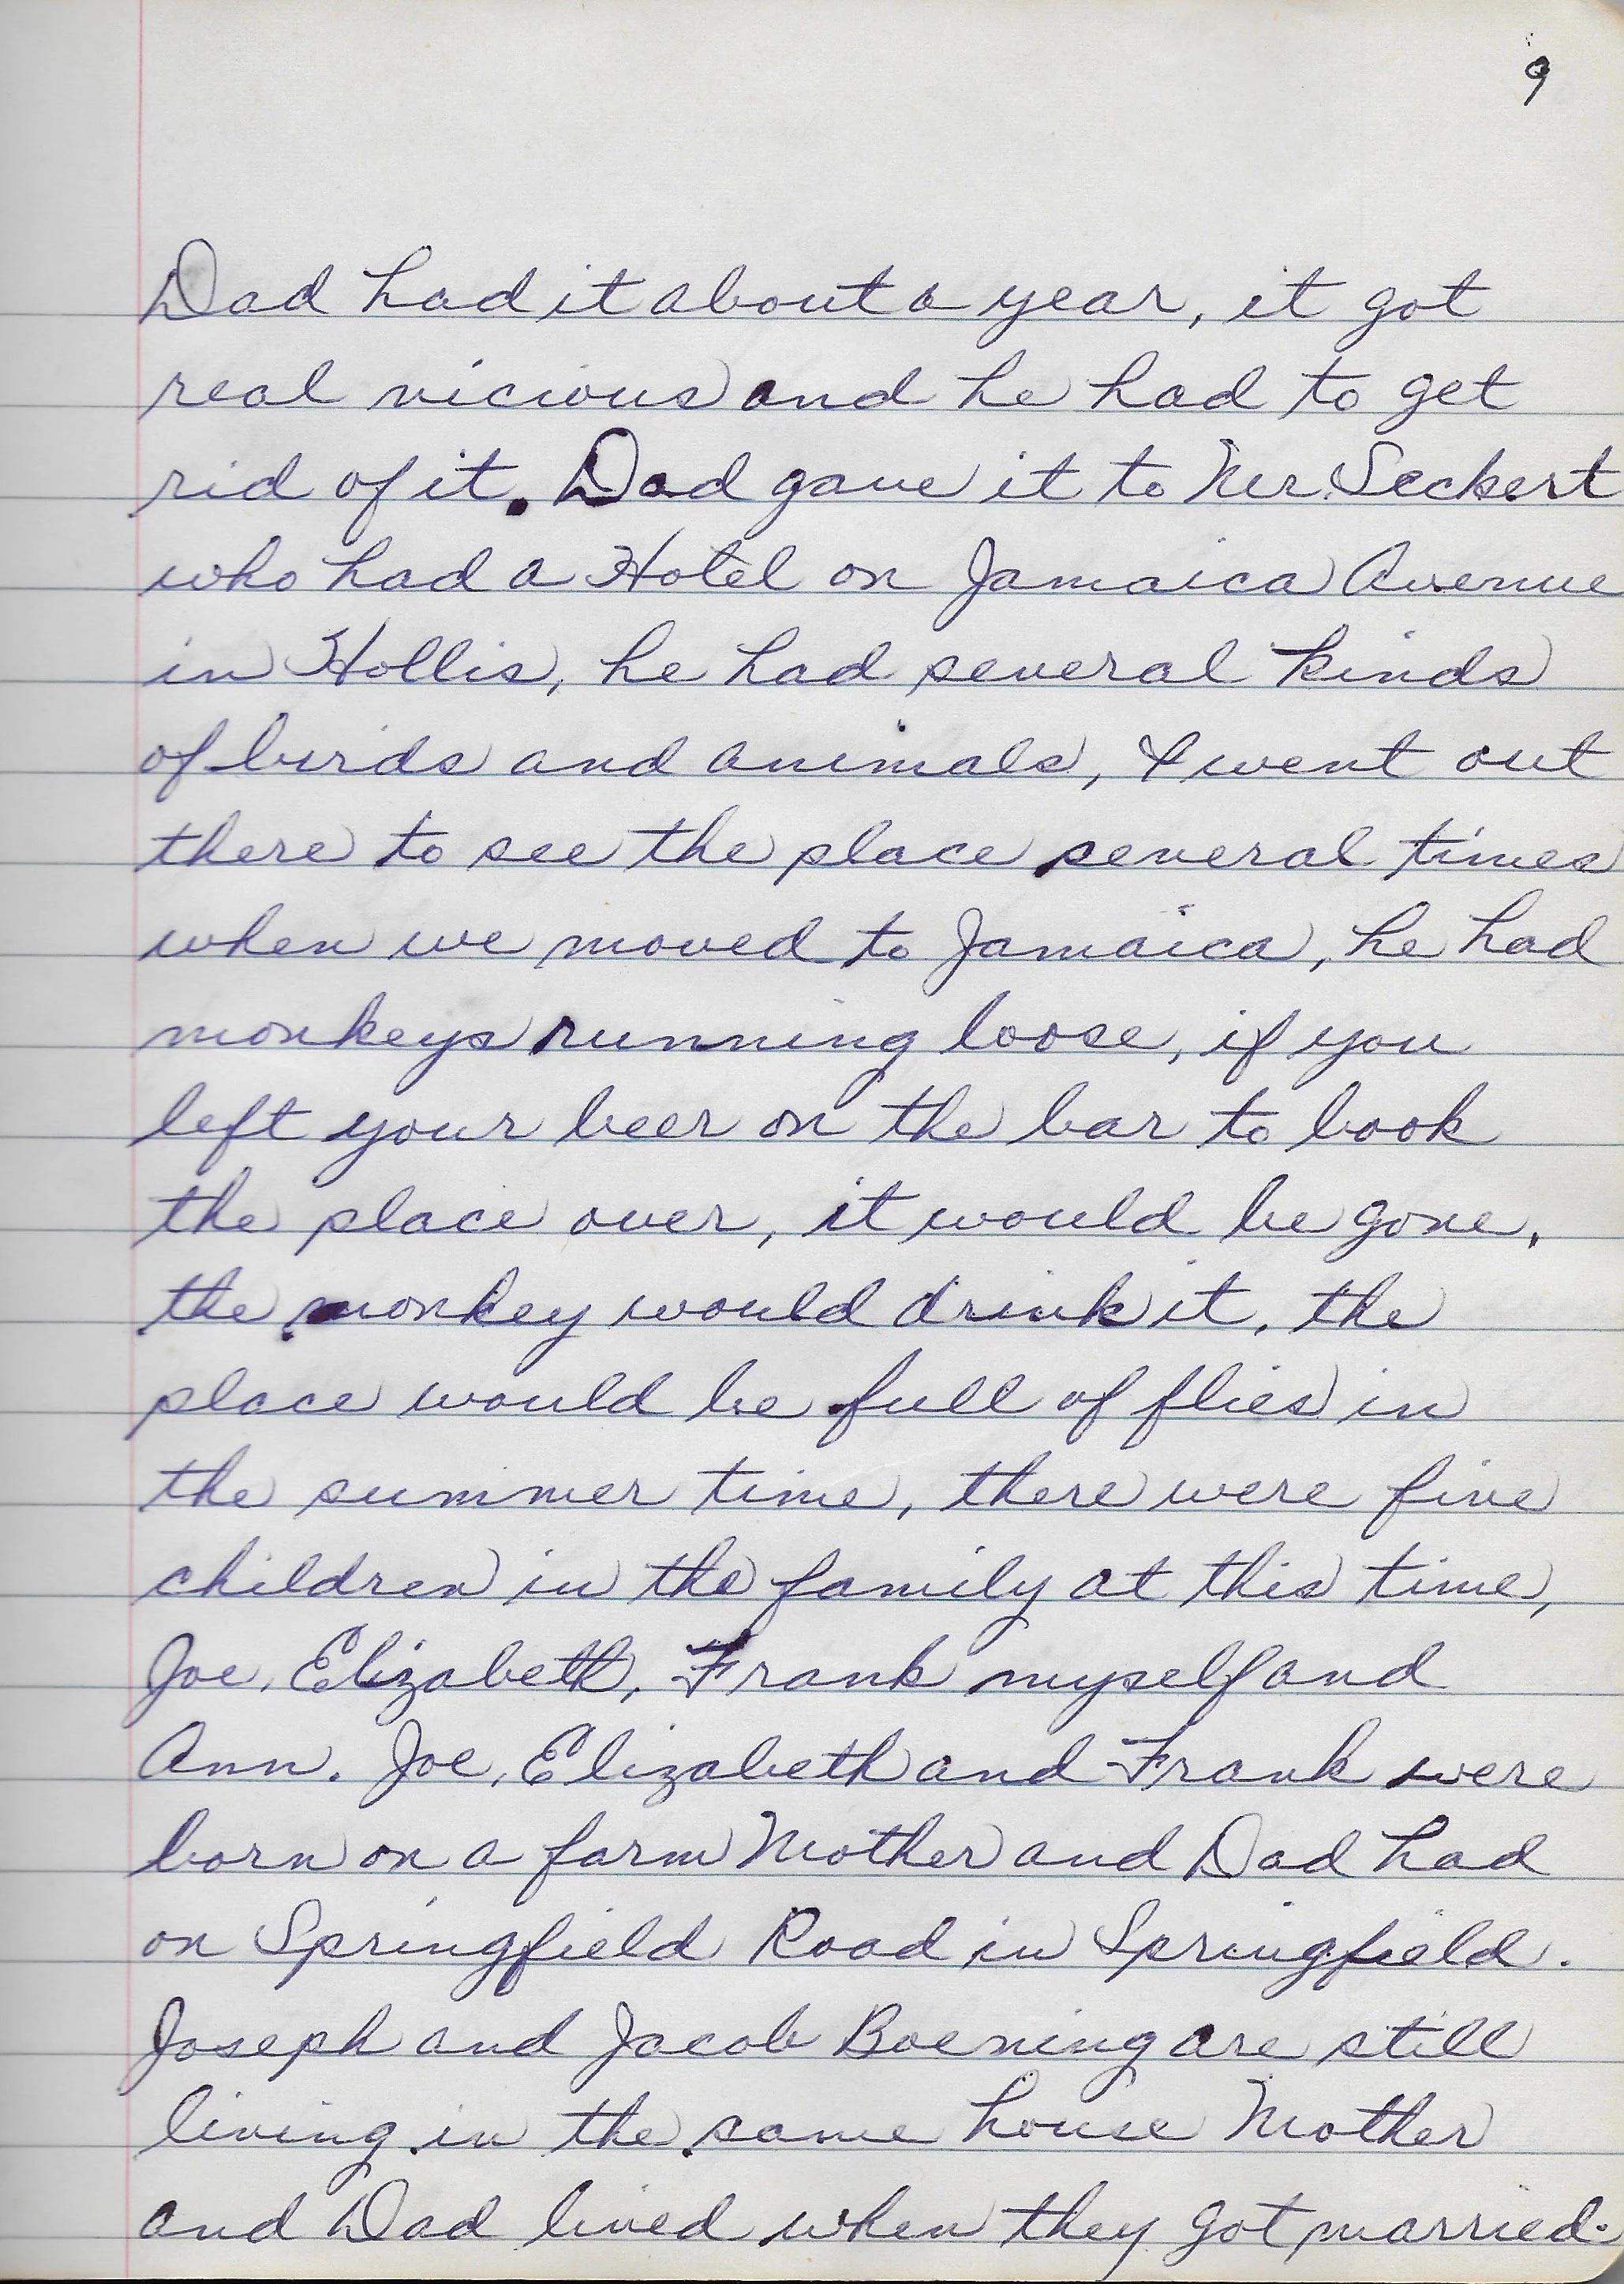 9
Dad had it about a year, it got
real vicious and he had to get
rid of it. Dad gave it to Mr. Seckert
who had a Hotel on Jamaica Avenue
in Hollis, he had several kinds
of birds and animals, I went out
there to see the place several times
when we moved to Jamaica, he had
monkeys running loose, if you
left your beer on the bar to look
the place over, it would be gone,
the monkey would drink it, the
place would be full of flies in
the summer time, there were five
children in the family at this time,
Joe, Elizabeth, Frank myself and
Ann. Joe, Elizabeth and Frank were
born on a farm Mother and Dad had
on Springfield Road in Springfield.
Joseph and Jacob Boening are still
living in the same house Mother
and Dad lived when they got married.